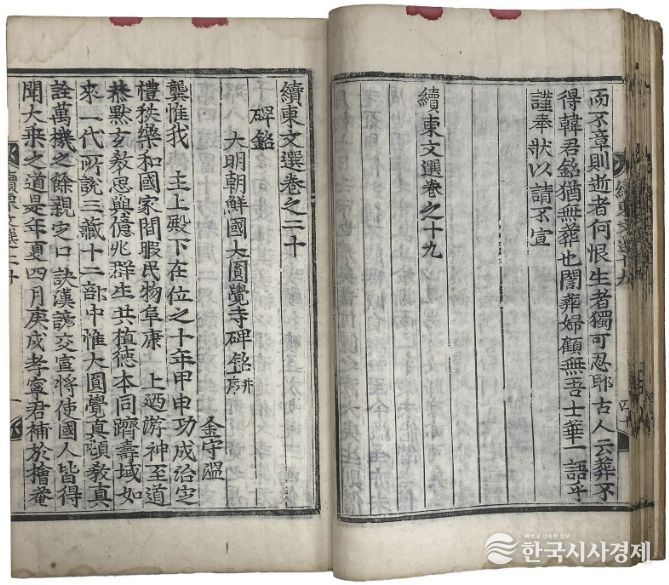 續東文選十九
而不章則逝者何恨生者獨可忍耶古人云葬不
得韓君銘猶無葬也闇葬婦顧無吾士華一語乎
謹奉狀以請不宣
續東文選卷之十九
續東文選卷之二十
碑銘
大明朝鮮國大圓覺寺碑銘 幷序
金守溫
龔惟我 主上殿下在位之十年甲申功成治定
禮秩樂和國家閒暇民物阜康 上迺游神至道
恭默玄敎思與億兆群生共植德本同躋壽域如
來一代所說三藏十二部中惟大圓覺眞頓敎眞
詮萬機之餘親定口訣漢諺交宣將使國人皆得
聞大乘之道是年夏四月庚戌孝寧君補於檜菴
續東文選二十 一
한국시사경제